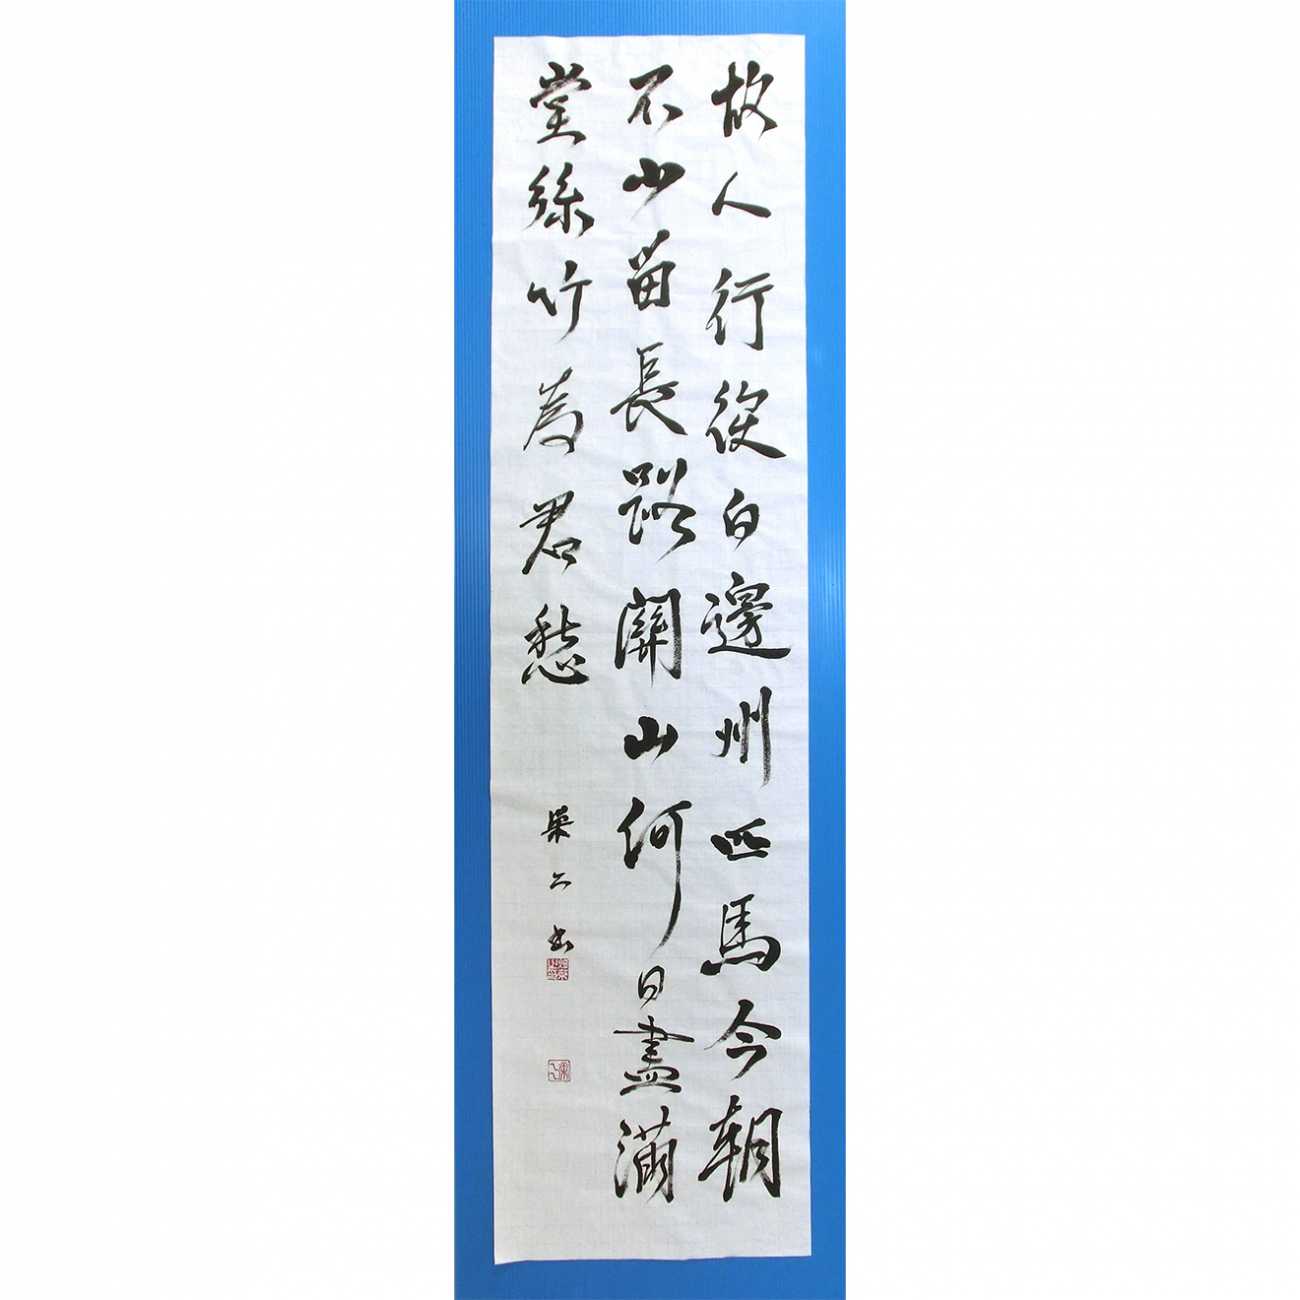 故人行役向邊州匹馬今朝
不少留長路關山何日盡滿
堂絲竹為君愁
書